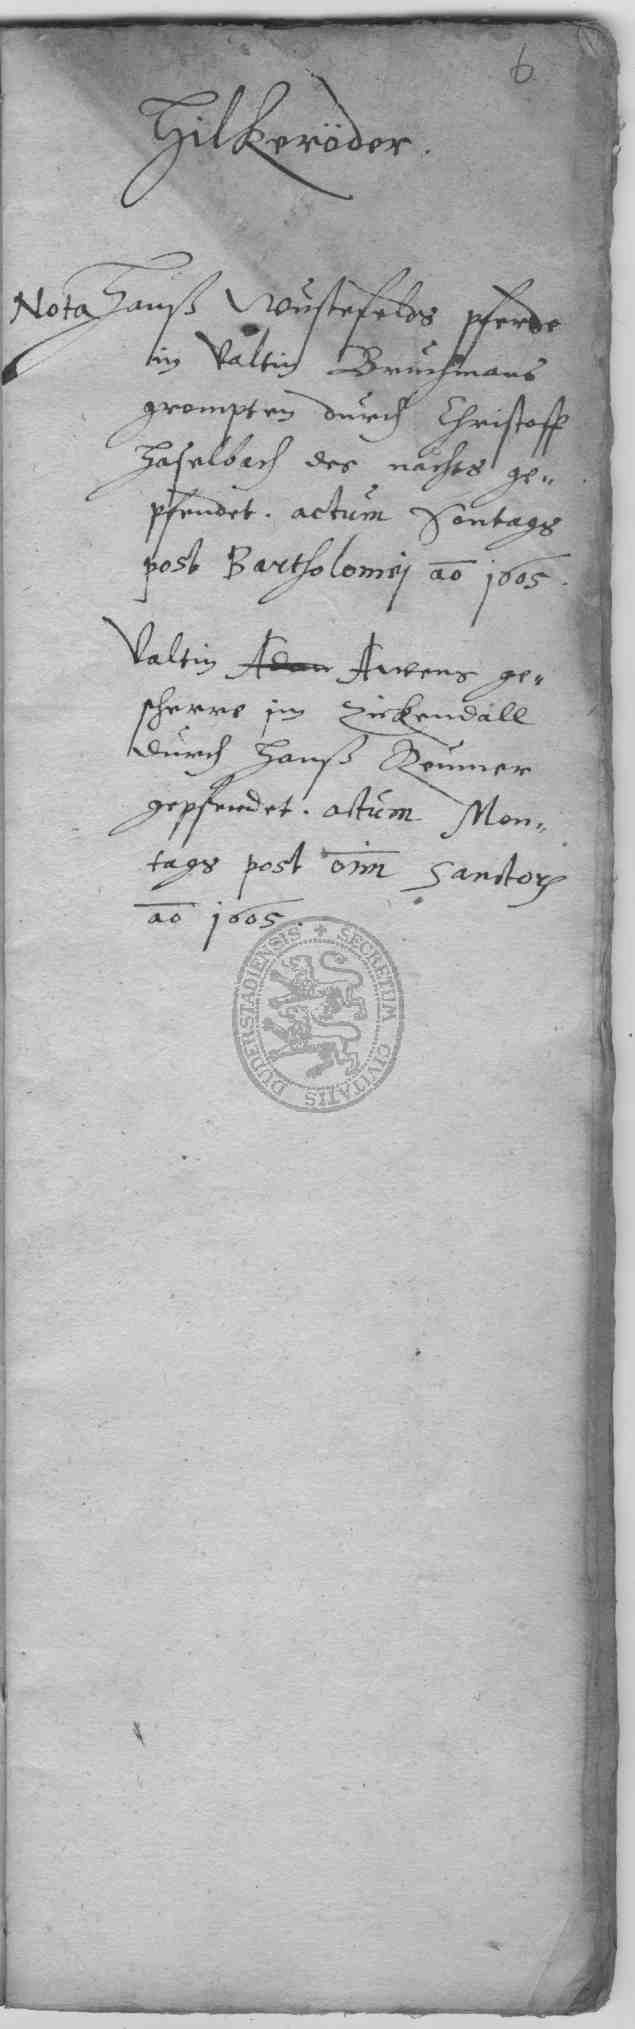 6
Hilkeröder.
Nota Hanß Wustefelds pferde
in Valtin Bruchmans
grompten durch Christoff
Haselbach des nachts ge„
pfendet. actum Sontags
post Bartholomei ao 1605.
Valtin Adan Arens ge„
scherre im Zickendall
durch Hanß Reumer
gepfendet. actum Mon„
tags post oim Sanctor
ao 1605.
SECRETUM CIVITATIS DUDERSTADIENSIS